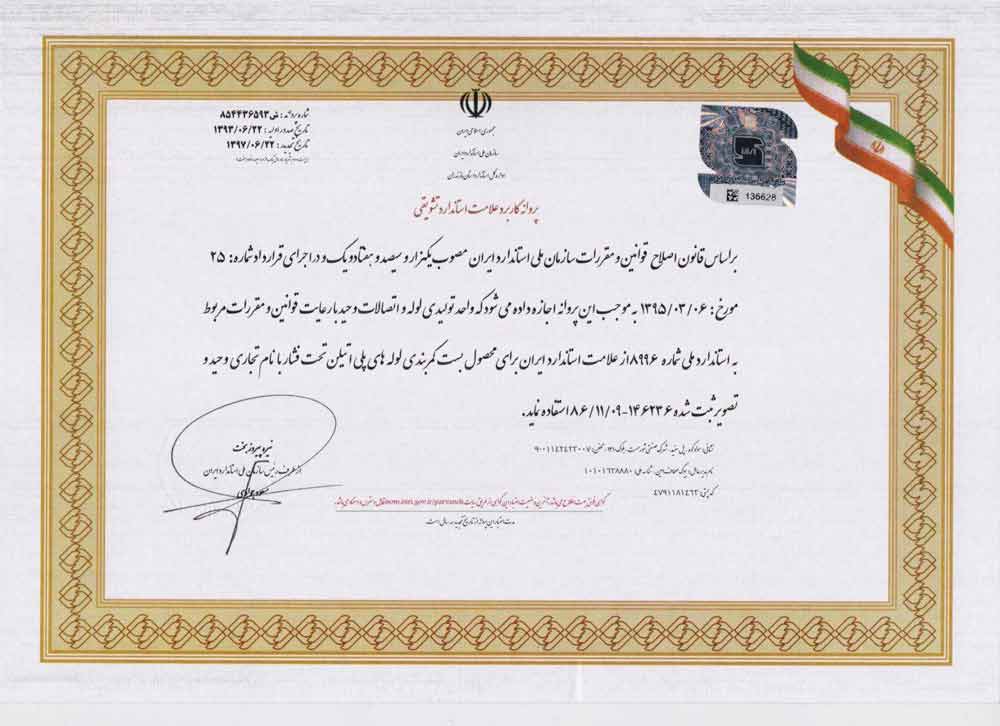 شماره پروانه : ش ۸۵۴۴۳۶۵۹۳
تاریخ صدور اولیه : ۱۳۹۳/۰۶/۲۲
تاریخ تجدید : ۱۳۹۷/۰۶/۲۲
جمهوری اسلامی ایران
سازمان ملی استاندارد ایران
اداره کل استاندارد استان مازندران
136628
پروانه کاربرد علامت استاندارد تشویقی
براساس قانون اصلاح قوانین و مقررات سازمان ملی استاندارد ایران مصوب یکهزار و سیصد و هفتاد و یک و در اجرای قرارداد شماره : ۲۵
مورخ : ۱۳۹۵/۰۳/۰۶ به موجب این پروانه اجازه داده می شود که واحد تولیدی لوله و اتصالات وحید با رعایت قوانین و مقررات مربوط
به استاندارد ملی شماره ۸۹۹۶ از علامت استاندارد ایران برای محصول بست کمربندی لوله های پلی اتیلن تحت فشار با نام تجاری وحید و
تصویر ثبت شده ۱۴۶۲۳۶-۸۶/۱۱/۰۹ استفاده نماید.
تلفن: ۹۰۰۱۱۴۲۴۲۳۰۰۷
شناسه ملی : ۱۰۱۰۱۶۲۸۸۸۰
کدپستی: ۴۷۹۱۱۸۱۴۶۳
نیره پیروزبخت
از طرف رئیس سازمان ملی استاندارد ایران
مدت اعتبار این پروانه از تاریخ تجدید سه سال است.